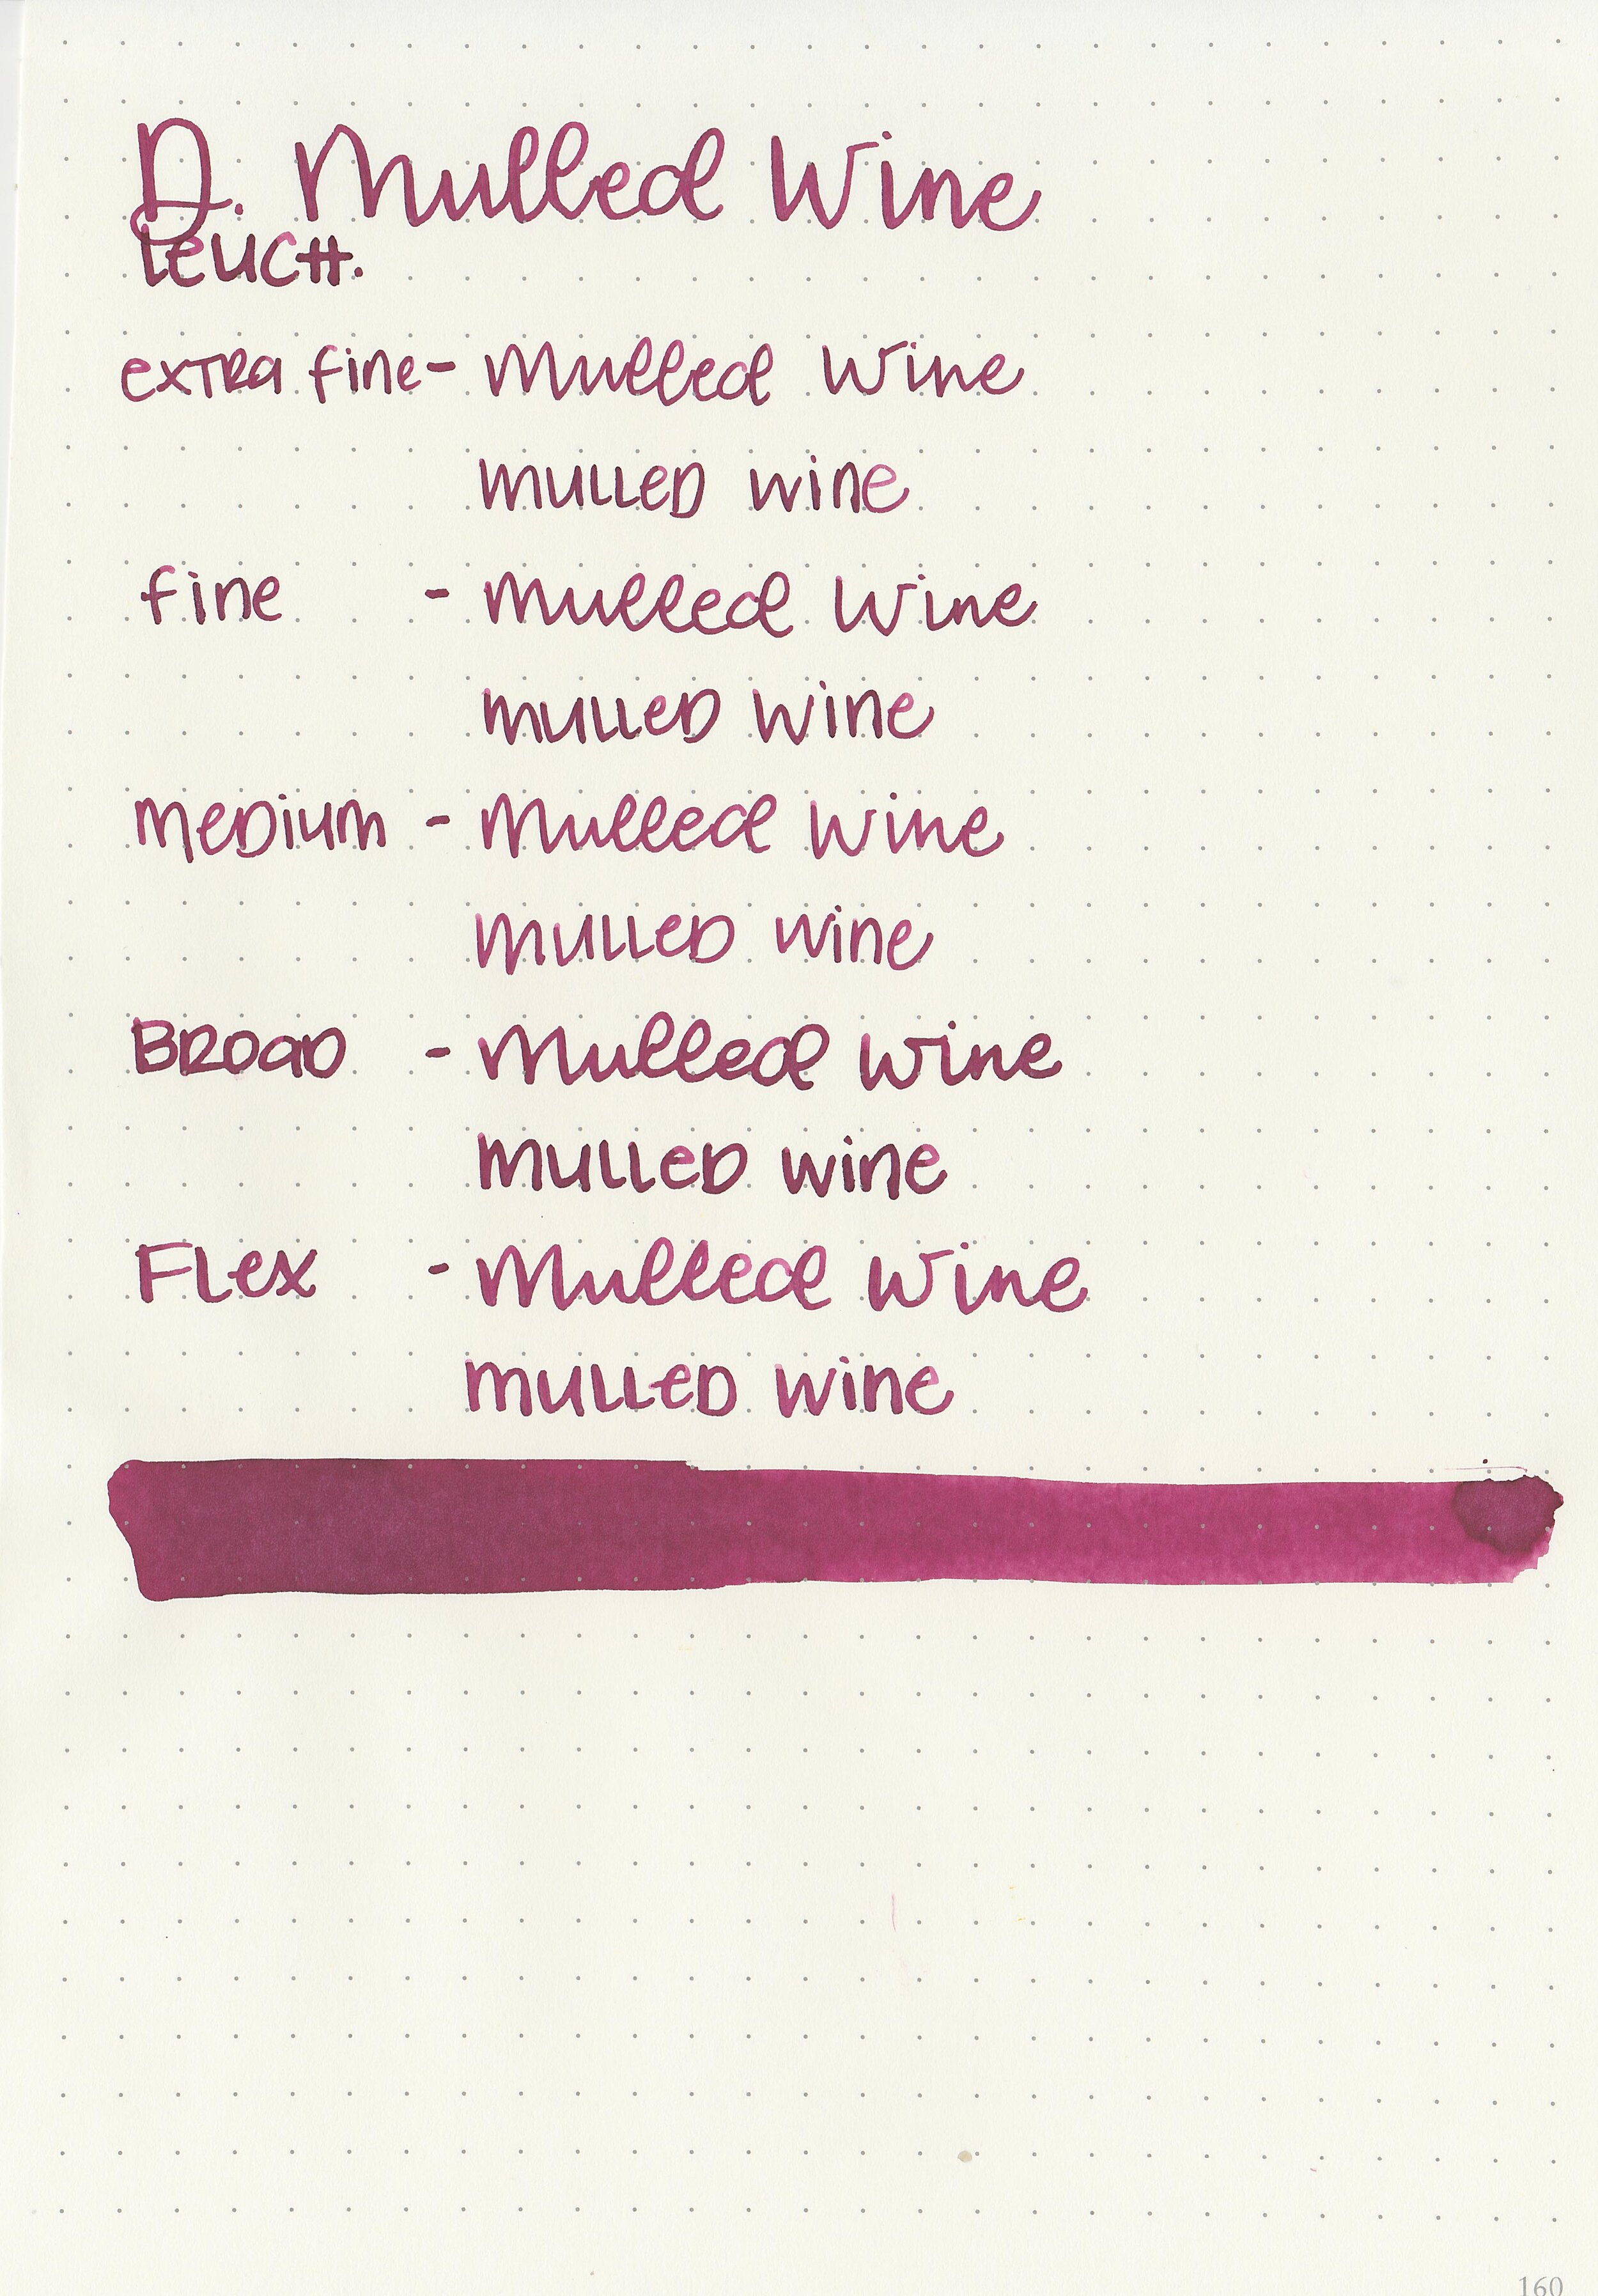 D. Mulled Wine
Leuch.
extra fine - Mulled Wine
mulled wine
fine - Mulled Wine
mulled wine
medium - Mulled Wine
mulled wine
Broad - Mulled Wine
mulled wine
Flex - Mulled Wine
mulled wine
160